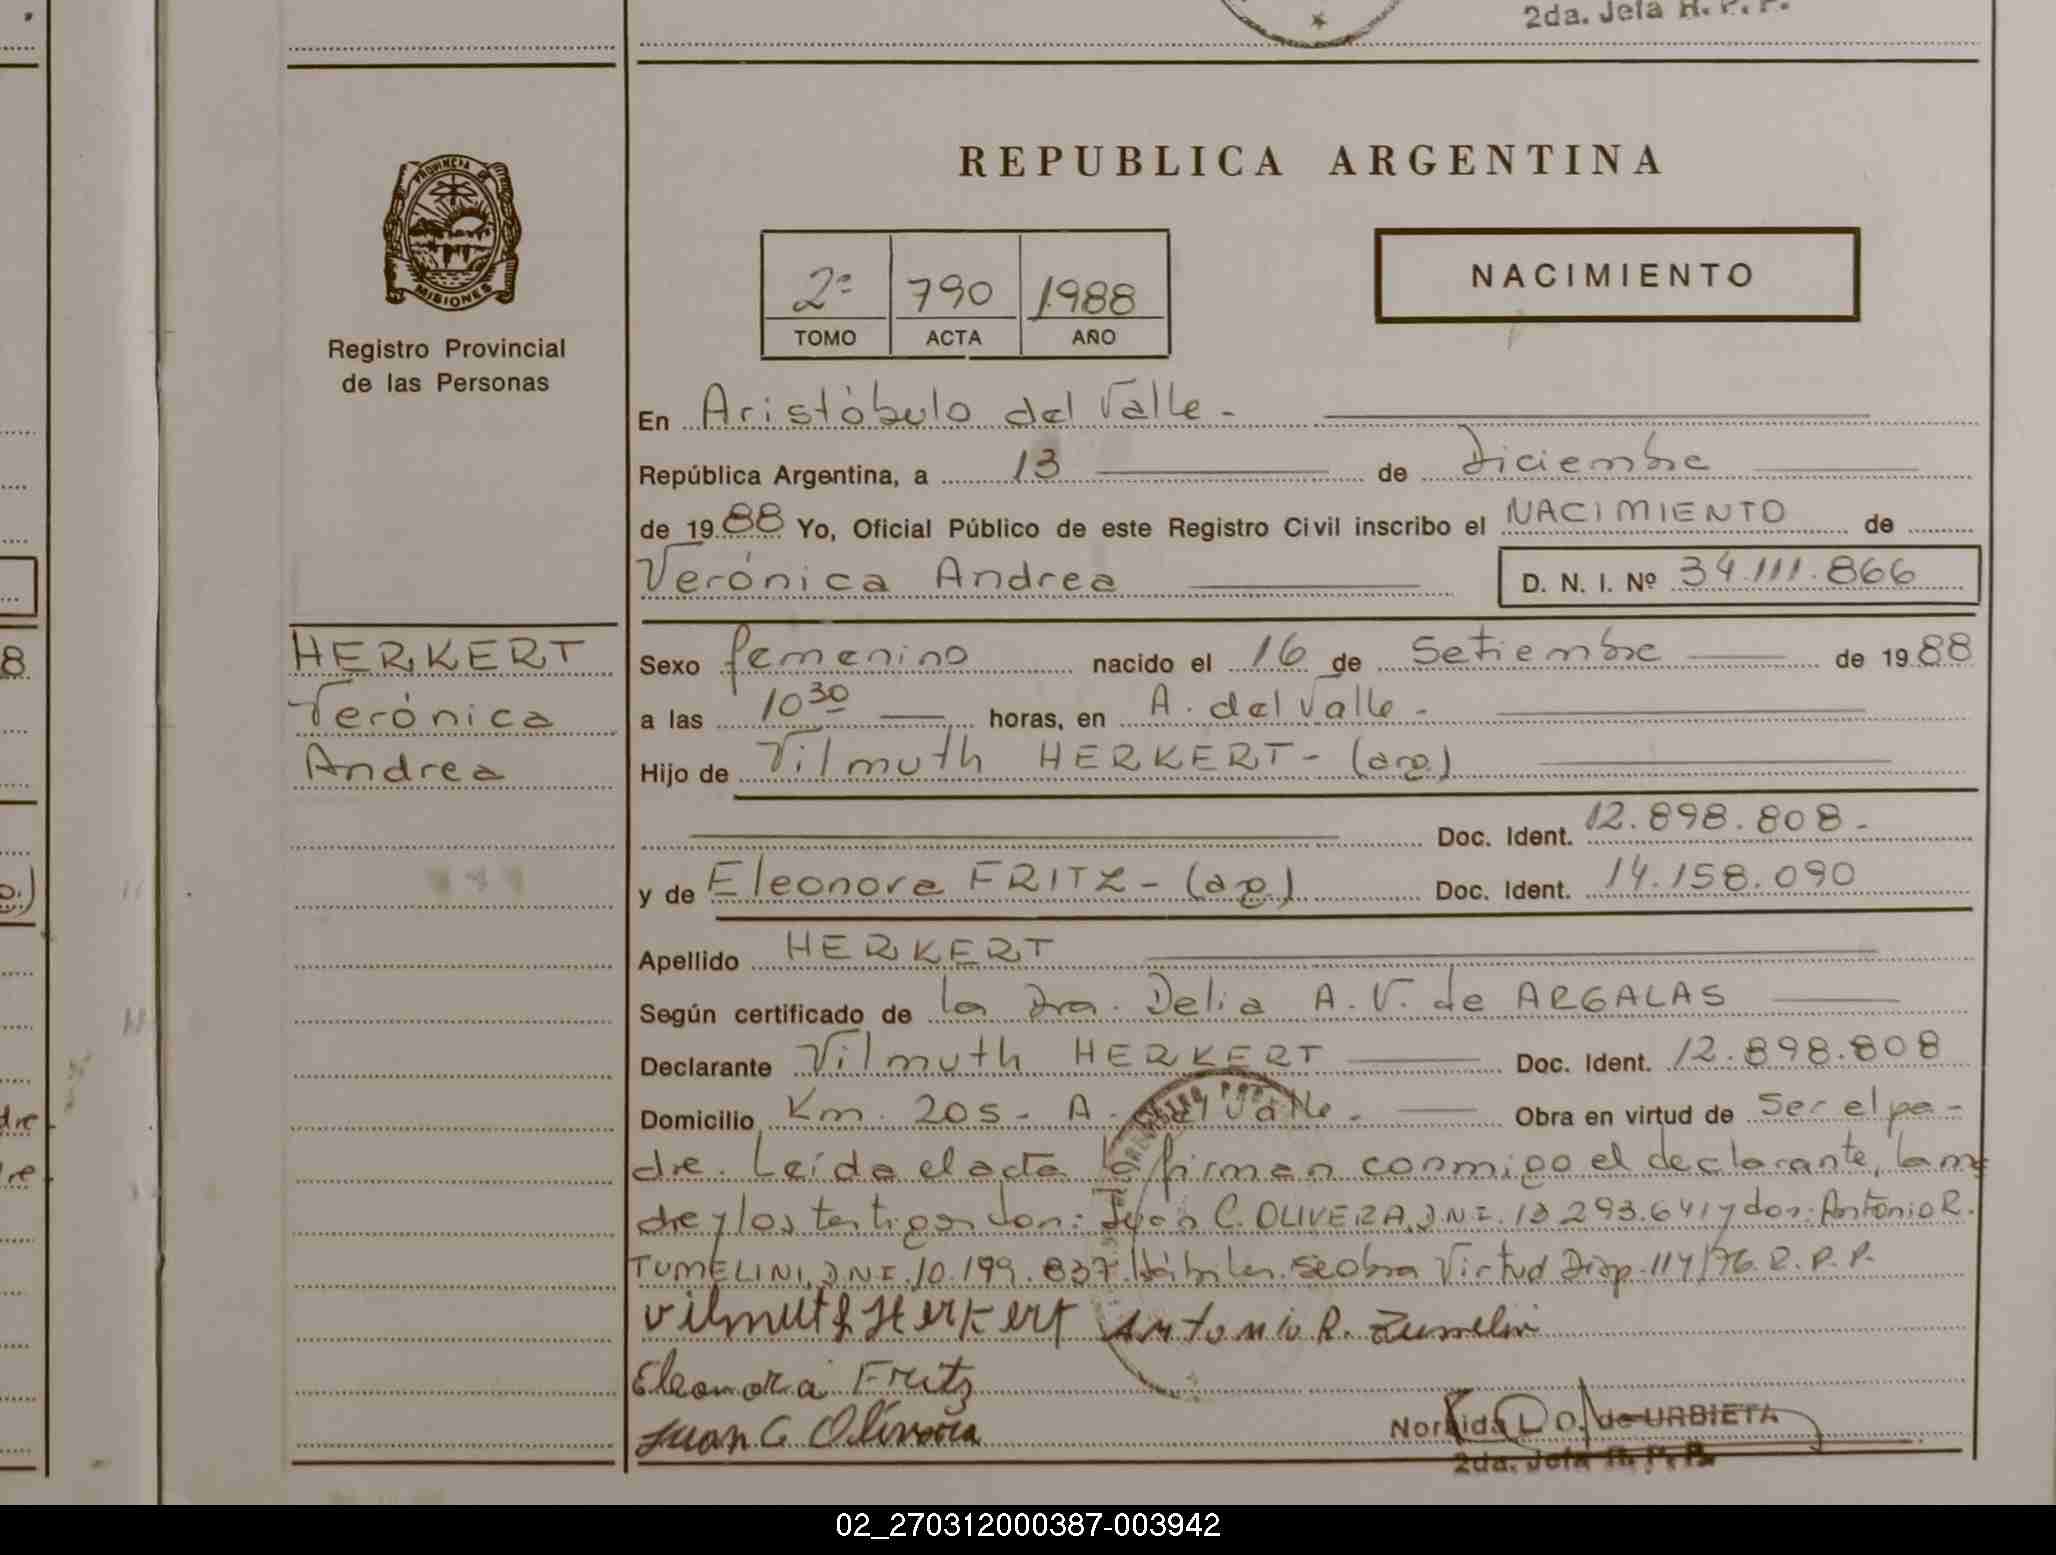 2da. Jefa R. P. P.
PROVINCIA DE
MISIONES
Registro Provincial
de las Personas
REPUBLICA ARGENTINA
2º 790 1988
TOMO ACTA AÑO
NACIMIENTO
En Aristóbulo del Valle.-
República Argentina, a 13 de Diciembre
de 1988 Yo, Oficial Público de este Registro Civil inscribo el NACIMIENTO de
Verónica Andrea D. N. I. Nº 34.111.866
HERKERT
Verónica
Andrea
Sexo femenino nacido el 16 de Setiembre de 1988
a las 10 30 horas, en A. del Valle.-
Hijo de Vilmuth HERKERT- (arg)
Doc. Ident. 12.898.808.-
y de Eleonora FRITZ- (arg) Doc. Ident. 14.158.090
Apellido HERKERT
Según certificado de la Dra. Delia A. V. de ARGALAS
Declarante Vilmuth HERKERT Doc. Ident. 12.898.808
Domicilio Km. 205- A. del Valle.- Obra en virtud de Ser el pa-
dre. Leída el acta la firman conmigo el declarante, la ma
dre y los testigos don: Juan C. OLIVERA, D.N.I. 13 293.641 y don: Antonio R.
TUMELINI, D.N.I. 10.199.837. Hábiles. Se obra Virtud Disp. 114/76. R. P. P.
Vilmuth Herkert Antonio R. Zumelin
Eleonora Fritz
Juan C Olivera
Norbida L. O. de URBIETA
2da. Jefa R. P. P.
8
dre
re
02_270312000387-003942